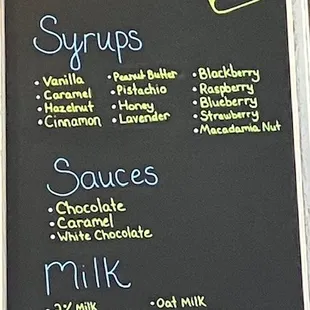 Syrups
• Vanilla
• Caramel
• Hazelnut
• Cinnamon
• Peanut Butter
• Pistachio
• Honey
• Lavender
• Blackberry
• Raspberry
• Blueberry
• Strawberry
• Macadamia Nut
Sauces
• Chocolate
• Caramel
• White Chocolate
Milk
• 2% Milk
• Oat Milk